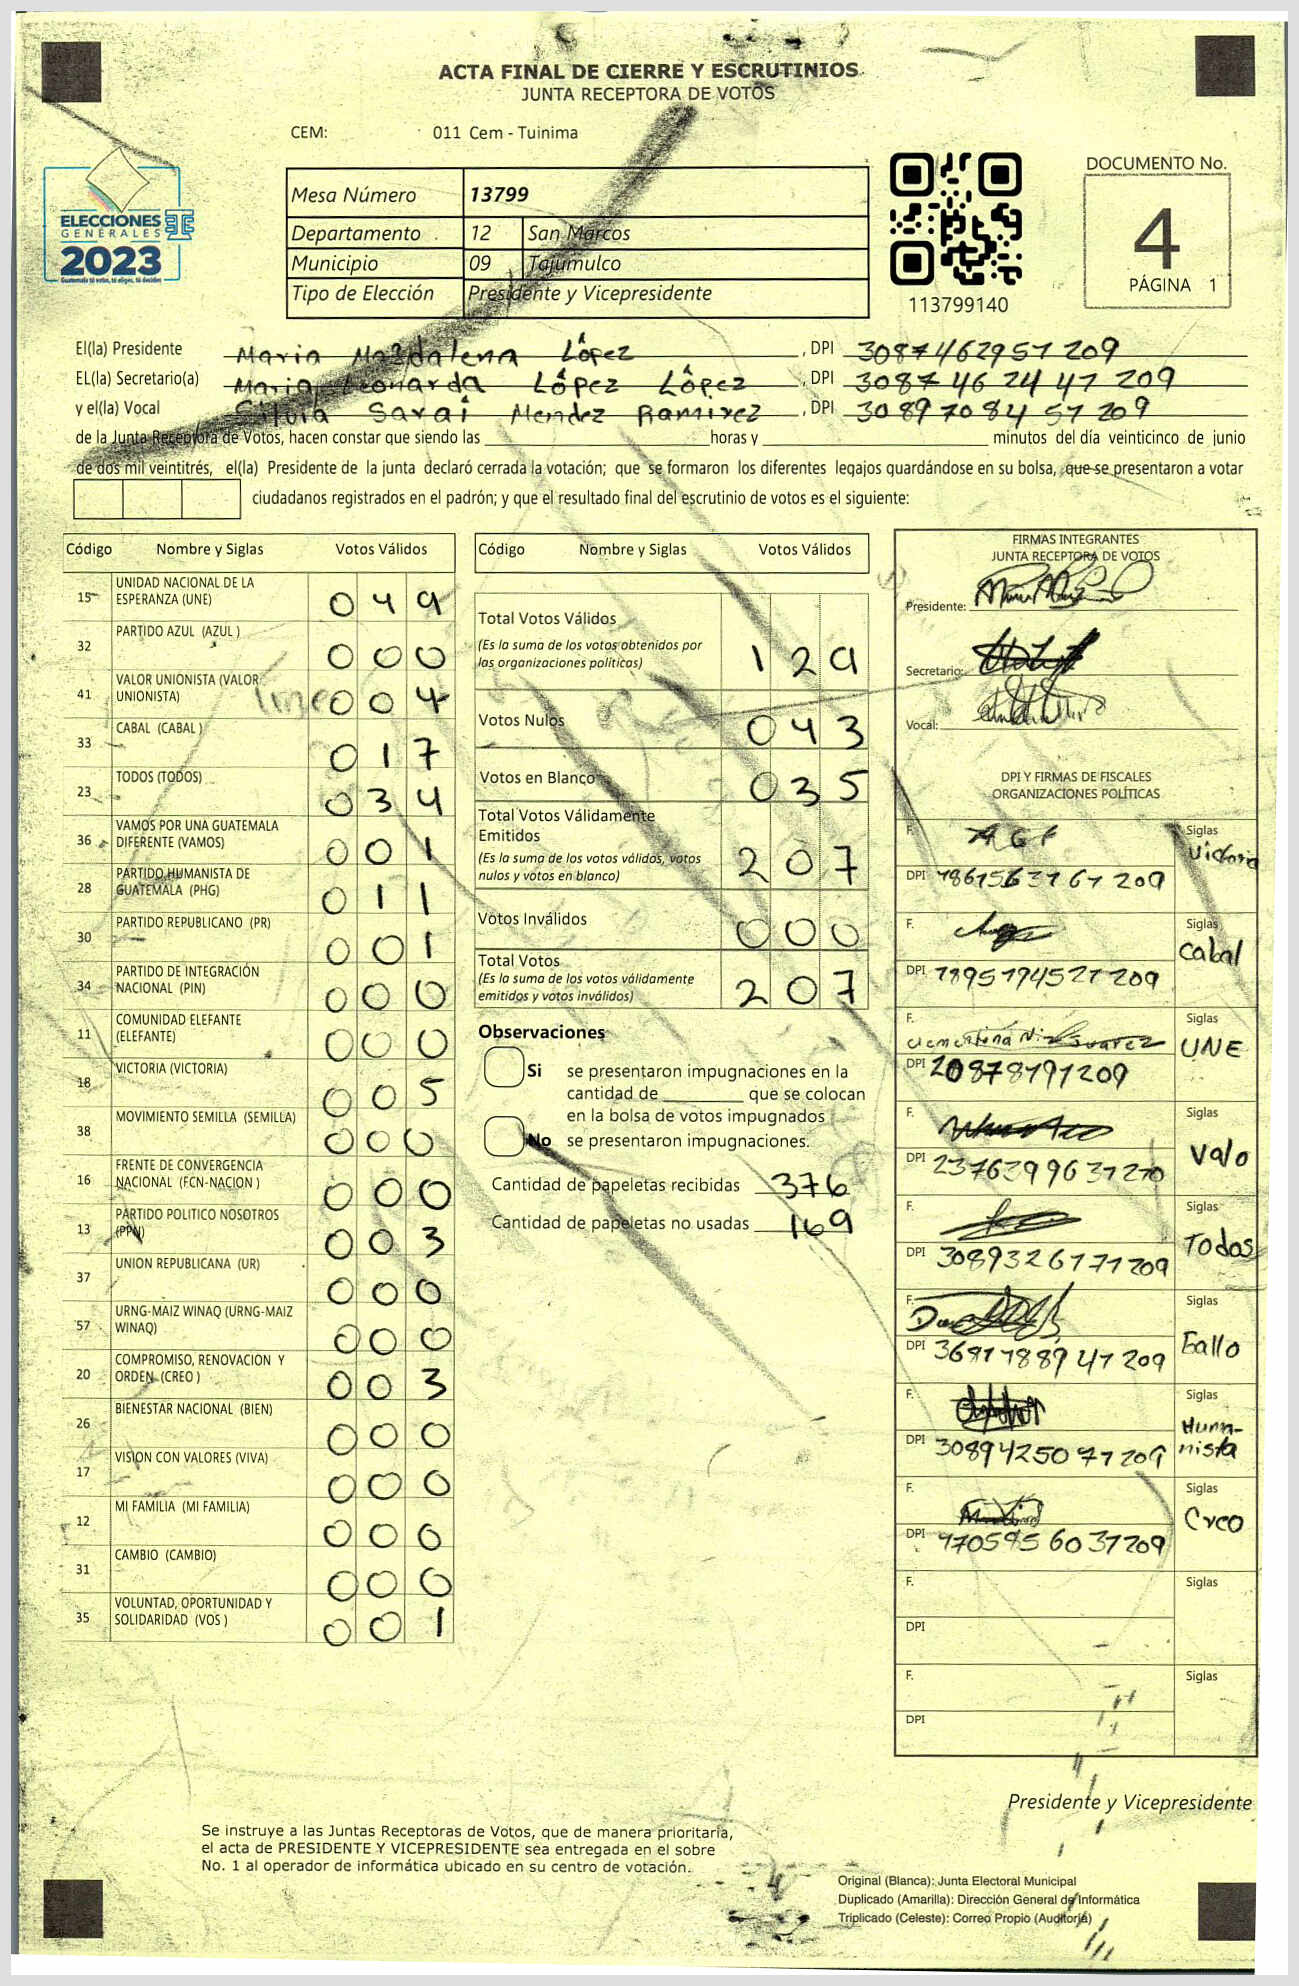 ACTA FINAL DE CIERRE Y ESCRUTINIOS
JUNTA RECEPTORA DE VOTOS
CEM: 011 Cem - Tuinima
ELECCIONES
GENERALES
2023
Guatemala tú votas, tú eliges, tú decides
Mesa Número 13799
Departamento 12 San Marcos
Municipio 09 Tajumulco
Tipo de Elección Presidente y Vicepresidente
113799140
DOCUMENTO No.
4
PÁGINA 1
El(la) Presidente Maria Magdalena López , DPI 3087462951209
EL(la) Secretario(a) Maria Leonarda López López , DPI 3087462441209
y el(la) Vocal Silvia Sarai Mendez Ramirez , DPI 3089708451209
de la Junta Receptora de Votos, hacen constar que siendo las horas y minutos del día veinticinco de junio
de dos mil veintitrés, el(la) Presidente de la junta declaró cerrada la votación; que se formaron los diferentes legajos guardándose en su bolsa, que se presentaron a votar
ciudadanos registrados en el padrón; y que el resultado final del escrutinio de votos es el siguiente:
Código Nombre y Siglas Votos Válidos
15 UNIDAD NACIONAL DE LA ESPERANZA (UNE) 049
32 PARTIDO AZUL (AZUL ) 000
41 VALOR UNIONISTA (VALOR UNIONISTA) 004
33 CABAL (CABAL ) 017
23 TODOS (TODOS) 034
36 VAMOS POR UNA GUATEMALA DIFERENTE (VAMOS) 001
28 PARTIDO HUMANISTA DE GUATEMALA (PHG) 011
30 PARTIDO REPUBLICANO (PR) 001
34 PARTIDO DE INTEGRACIÓN NACIONAL (PIN) 000
11 COMUNIDAD ELEFANTE (ELEFANTE) 000
18 VICTORIA (VICTORIA) 005
38 MOVIMIENTO SEMILLA (SEMILLA) 000
16 FRENTE DE CONVERGENCIA NACIONAL (FCN-NACION ) 000
13 PARTIDO POLITICO NOSOTROS (PPN) 003
37 UNION REPUBLICANA (UR) 000
57 URNG-MAIZ WINAQ (URNG-MAIZ WINAQ) 000
20 COMPROMISO, RENOVACION Y ORDEN (CREO ) 003
26 BIENESTAR NACIONAL (BIEN) 000
17 VISION CON VALORES (VIVA) 000
12 MI FAMILIA (MI FAMILIA) 000
31 CAMBIO (CAMBIO) 000
35 VOLUNTAD, OPORTUNIDAD Y SOLIDARIDAD (VOS ) 001
Código Nombre y Siglas Votos Válidos
Total Votos Válidos
(Es la suma de los votos obtenidos por
las organizaciones políticas) 129
Votos Nulos 043
Votos en Blanco 035
Total Votos Válidamente
Emitidos
(Es la suma de los votos válidos, votos
nulos y votos en blanco) 207
Votos Inválidos 000
Total Votos
(Es la suma de los votos válidamente
emitidos y votos inválidos) 207
Observaciones
Si se presentaron impugnaciones en la
cantidad de que se colocan
en la bolsa de votos impugnados
No se presentaron impugnaciones.
Cantidad de papeletas recibidas 376
Cantidad de papeletas no usadas 169
FIRMAS INTEGRANTES
JUNTA RECEPTORA DE VOTOS
Presidente:
Secretario:
Vocal:
DPI Y FIRMAS DE FISCALES
ORGANIZACIONES POLÍTICAS
F. Siglas Victoria
DPI
F. Siglas Cabal
DPI 1895194521209
F. Siglas UNE
DPI
F. Siglas Valo
DPI
F. Siglas Todos
DPI 3089326171209
F. Siglas Gallo
DPI
F. Siglas Humanista
DPI 3089425071209
F. Siglas Creo
DPI
F. Siglas
DPI
F. Siglas
DPI
Presidente y Vicepresidente
Se instruye a las Juntas Receptoras de Votos, que de manera prioritaria,
el acta de PRESIDENTE Y VICEPRESIDENTE sea entregada en el sobre
No. 1 al operador de informática ubicado en su centro de votación.
Original (Blanca): Junta Electoral Municipal
Duplicado (Amarilla): Dirección General de Informática
Triplicado (Celeste): Correo Propio (Auditoría)